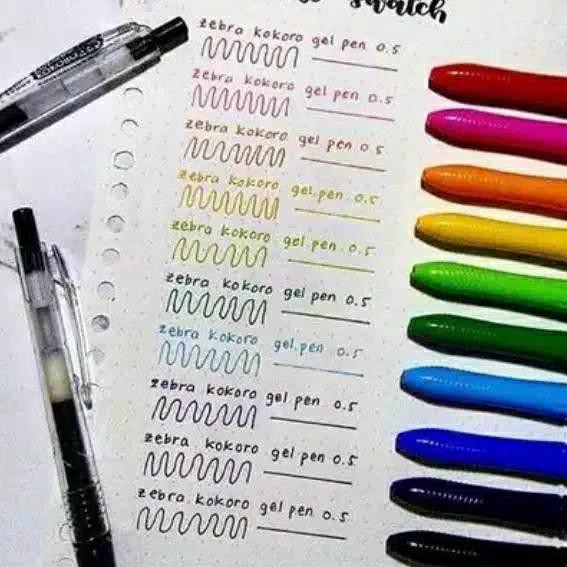 swatch
zebra kokoro gel pen 0.5
zebra kokoro gel pen 0.5
zebra kokoro gel pen 0.5
zebra kokoro gel pen 0.5
zebra kokoro gel pen 0.5
zebra kokoro gel pen 0.5
zebra kokoro gel pen 0.5
zebra kokoro gel pen 0.5
zebra kokoro gel pen 0.5
zebra kokoro gel pen 0.5